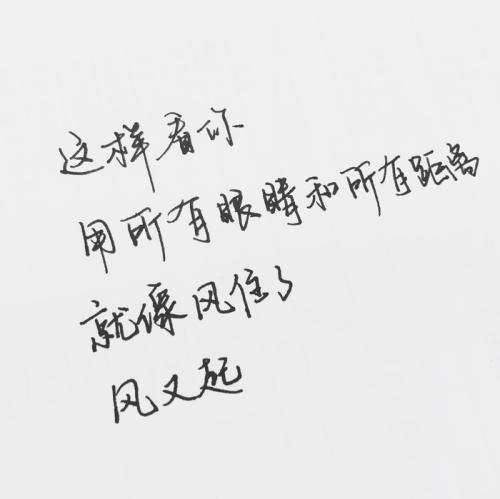 这样看你
用所有眼睛和所有距离
就像风住了
风又起